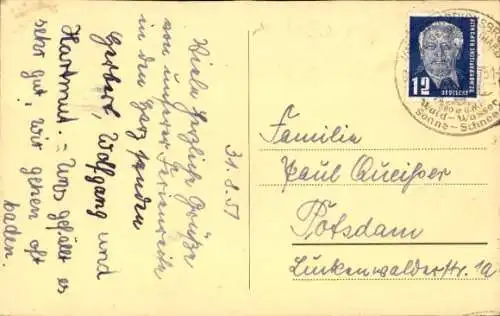 31.8.51
Viele herzliche Grüße
von unserer Ferienreise
in den Harz senden
Herbert, Wolfgang und
Hartmut. – Uns gefällt es
sehr gut, wir gehen oft
baden.
12
DEUTSCHE
DEMOKRATISCHE REPUBLIK
Wald – Wasser
Sonne – Schnee
Familie
Paul
Potsdam
Luckenwalderstr. 1a